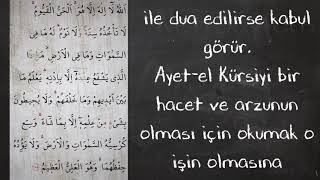 اللّٰهُ لَا اِلٰهَ اِلَّا هُوَ اَلْحَيُّ الْقَيُّومُ
لَا تَأْخُذُهُ سِنَةٌ وَلَا نَوْمٌ لَهُ مَا فِي
السَّمٰوَاتِ وَمَا فِي الْاَرْضِ مَنْ ذَا
الَّذِي يَشْفَعُ عِنْدَهُ اِلَّا بِاِذْنِهِ يَعْلَمُ مَا
بَيْنَ اَيْدِيهِمْ وَمَا خَلْفَهُمْ وَلَا يُحِيطُونَ
بِشَيْءٍ مِنْ عِلْمِهِ اِلَّا بِمَا شَاءَ وَسِعَ
كُرْسِيُّهُ السَّمٰوَاتِ وَالْاَرْضَ وَلَا يَؤُدُهُ
حِفْظُهُمَا وَهُوَ الْعَلِيُّ الْعَظِيمُ
ile dua edilirse kabul
görür.
Ayet-el Kürsiyi bir
hacet ve arzunun
olması için okumak o
işin olmasına